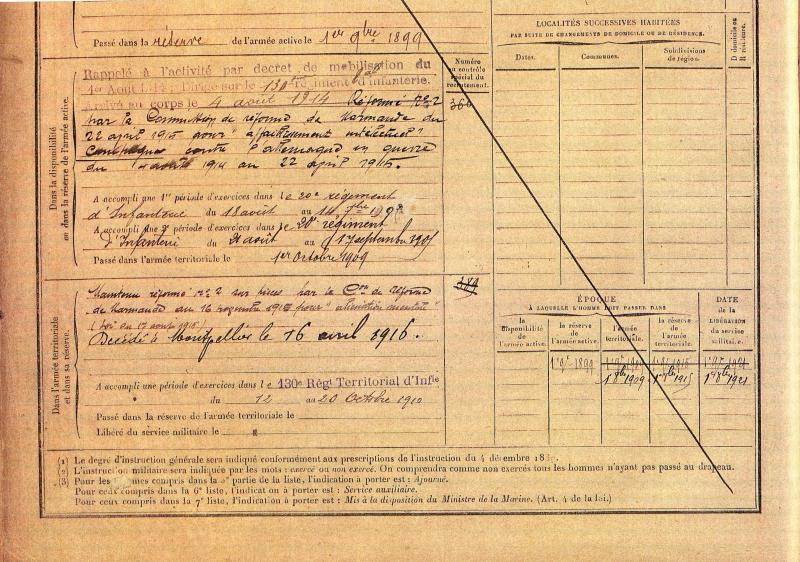 Passé dans la réserve de l'armée active le 1er 9bre 1899
Dans la disponibilité
ou dans la réserve de l'armée active.
Rappelé à l'activité par decret de mobilisation du
1er Août 1914; Dirigé sur le 130e regiment d'infanterie.
Arrivé au corps le 4 août 1914 Réformé no 2
par la Commission de réforme de Marmande du
22 avril 1915 pour "affaiblissement intellectuel"
Campagnes contre l'allemagne en guerre
du 4 août 1914 au 22 april 1915.
A accompli une 1re période d'exercices dans le 20e régiment
d'Infanterie du 18 août au 14
A accompli une 2e période d'exercices dans le 20e régiment
d'Infanterie du 21 août au 17 septembre 1905
Passé dans l'armée territoriale le 1er Octobre 1909
Numéro
au contrôle
spécial du
recrutement.
360
Dans l'armée territoriale
et dans sa réserve.
Maintenu réformé no 2 sur pièces par la Con de réforme
de Marmande du 16 novembre 1915 pour "aliénation mentale"
(Loi du 17 août 1915)
Décédé à Montpellier le 16 avril 1916.
A accompli une période d'exercices dans le 130e Régt Territorial d'Infie
du 12 au 20 Octobre 1910
Passé dans la réserve de l'armée territoriale le
Libéré du service militaire le
389
LOCALITÉS SUCCESSIVES HABITÉES
PAR SUITE DE CHANGEMENTS DE DOMICILE OU DE RÉSIDENCE.
Dates.
Communes.
Subdivisions
de région.
D domicile ou
R résidence.
ÉPOQUE
À LAQUELLE L'HOMME DOIT PASSER DANS
DATE
de la
LIBÉRATION
du service
militaire.
la
disponibilité
de l'armée active.
la réserve
de
l'armée active.
l'armée
territoriale.
la réserve
de
l'armée
territoriale.
1er 9bre 1899
1er 8bre 1909
1er 8bre 1915
1er 8bre 1921
(1) Le degré d'instruction générale sera indiqué conformément aux prescriptions de l'instruction du 4 décembre
(2) L'instruction militaire sera indiquée par les mots : exercé ou non exercé. On comprendra comme non exercés tous les hommes n'ayant pas passé au drapeau.
(3) Pour les hommes compris dans la 5e partie de la liste, l'indication à porter est : Ajourné.
Pour ceux compris dans la 6e liste, l'indication à porter est : Service auxiliaire.
Pour ceux compris dans la 7e liste, l'indication à porter est : Mis à la disposition du Ministre de la Marine. (Art. 4 de la loi.)